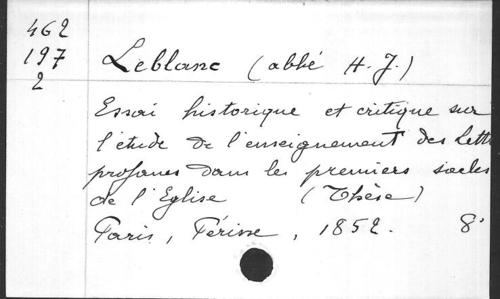 462
197
2
Leblanc (abbé H. J.)
Essai historique et critique sur
l'étude de l'enseignement des Lett
profanes dans les premiers siècles
de l'Eglise (Thèse)
Paris, Périsse, 1852. 8°